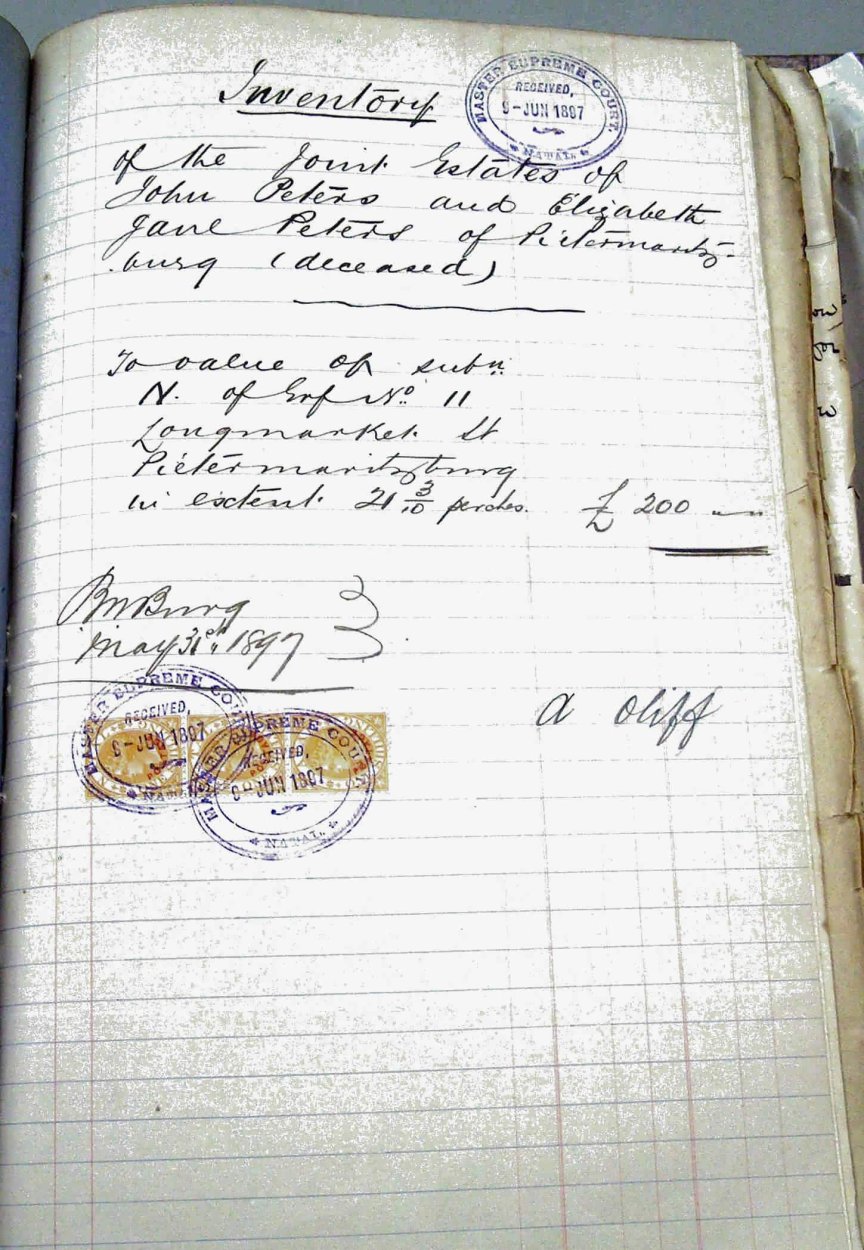 Inventory
MASTER SUPREME COURT
RECEIVED,
9-JUN 1897
NATAL
of the Joint Estates of
John Peters and Elizabeth
Jane Peters of Pietermaritz-
burg (deceased)
To value of subn.
N. of Erf No. 11
Longmarket St
Pietermaritzburg
in extent 21 3/10 perches. £ 200
PMBurg
May 31st, 1897
MASTER SUPREME COURT
RECEIVED,
9-JUN 1897
NATAL
MASTER SUPREME COURT
RECEIVED,
9-JUN 1897
NATAL
A Oliff